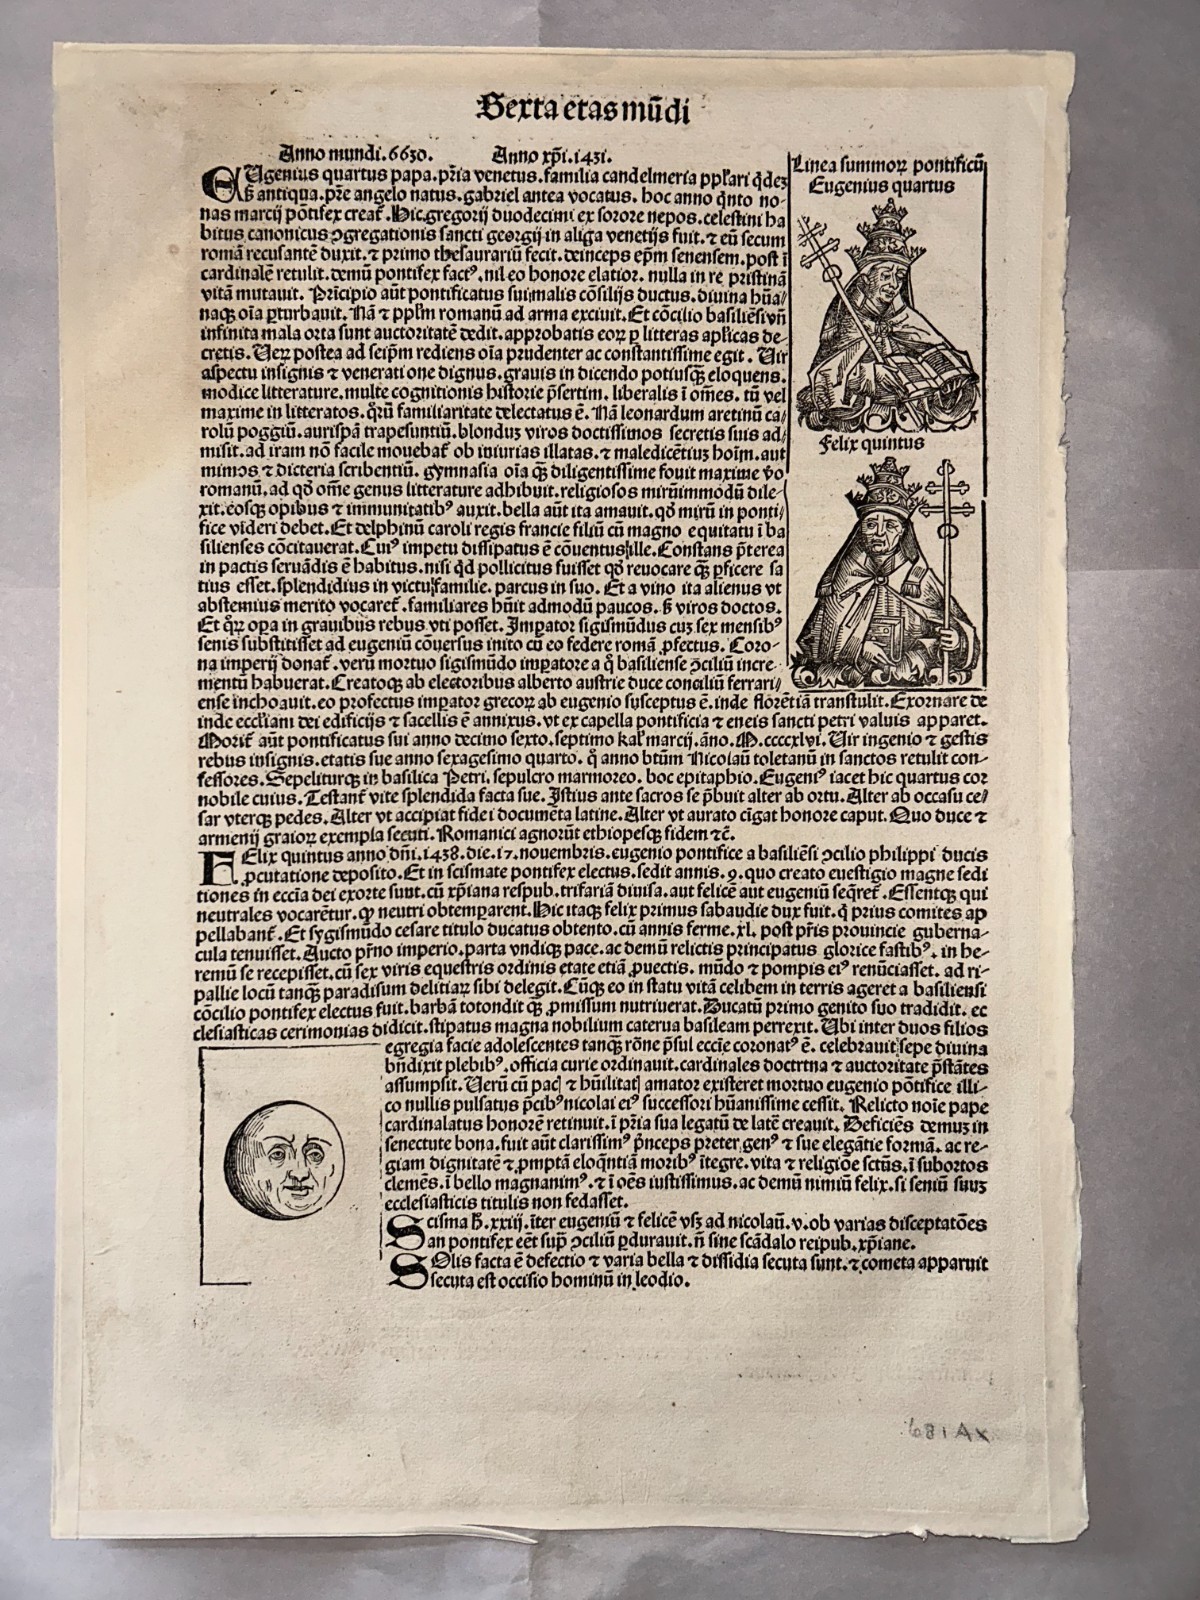 Sexta etas mūdi
Anno mundi.6630. Anno xp̄i.1431.
EUgenius quartus papa.pr̄ia venetus.familia candelmeria pplari qdez
antiqua.pr̄e angelo natus.gabriel antea vocatus. hoc anno qͥnto no-
nas marcij pōtifex creat̄.Hic.gregorij duodecimi ex sorore nepos.celestini ha
bitus canonicus ꝯgregationis sancti georgij in aliga venetijs fuit.⁊ eū secum
romā recusantē duxit.⁊ primo thesaurariū fecit.deinceps ep̄m senensem.post ī
cardinalē retulit.demū pontifex factꝰ.nil eo honore elatior.nulla in re pristinā
vitā mutauit. Prīcipio aūt pontificatus sui malis cōsilijs ductus.diuina hūa/
naqꝫ oīa ꝑturbauit. Nā ⁊ pplm romanū ad arma exciuit.Et cōcilio basiliēsi vn̄
infinita mala orta sunt auctoritatē dedit.approbatis eoꝝ ꝑ litteras apl̄icas de
cretis.Ueꝝ postea ad seip̄m rediens oīa prudenter ac constantissime egit. Uir
aspectu insignis ⁊ veneratione dignus.grauis in dicendo potiusqꝫ eloquens.
modice litterature.multe cognitionis historie p̄sertim. liberalis ī om̄es. tū vel
maxime in litteratos.qͦrū familiaritate delectatus ē. Nā leonardum aretinū ca/
rolū poggiū.aurispā trapesuntiū.blonduz viros doctissimos secretis suis ad/
misit.ad iram nō facile mouebat̄ ob iniurias illatas.⁊ maledicētiuz hoīm.aut
mimos ⁊ dicteria scribentiū. gymnasia oīa qꝫ diligentissime fouit maxime ṽo
romanū.ad qd̄ om̄e genus litterature adhibuit.religiosos mirūimmodū dile-
xit.eosqꝫ opibus ⁊ immunitatibꝰ auxit.bella aūt ita amauit.qd̄ mirū in ponti/
fice videri debet.Et delphinū caroli regis francie filiū cū magno equitatu ī ba
silienses cōcitauerat.Cuiꝰ impetu dissipatus ē cōuentus ille. Constans p̄terea
in pactis seruādis ē habitus.nisi qd̄ pollicitus fuisset qd̄ reuocare qꝫ ꝑficere sa
tius esset.splendidius in victu familie. parcus in suo. Et a vino ita alienus vt
abstemius merito vocaret̄.familiares hūit admodū paucos. sʒ viros doctos.
Et qͦꝝ opa in grauibus rebus vti posset. Imꝑator sigismūdus cuz sex mensibꝰ
senis substitisset ad eugeniū cōuersus inito cū eo federe romā ꝓfectus. Coro-
na imperij donat̄.verū mortuo sigismūdo imꝑatore a qͦ basiliense ꝯciliū incre-
mentū habuerat.Creatoqꝫ ab electoribus alberto austrie duce conciliū ferrari/
ense inchoauit.eo profectus imꝑator grecoꝝ ab eugenio susceptus ē.inde florētiā transtulit. Exornare de
inde eccl̄iam dei edificijs ⁊ sacellis ē annixus.vt ex capella pontificia ⁊ eneis sancti petri valuis apparet.
Morit̄ aūt pontificatus sui anno decimo sexto.septimo kal̄ marcij.āno. M.ccccxlvi. Uir ingenio ⁊ gestis
rebus insignis.etatis sue anno sexagesimo quarto. qͥ anno btūm Nicolaū toletanū in sanctos retulit con-
fessores.Sepeliturqꝫ in basilica Petri.sepulcro marmoreo. hoc epitaphio.Eugeniꝰ iacet hic quartus cor
nobile cuius. Testant̄ vite splendida facta sue. Istius ante sacros se p̄buit alter ab ortu.Alter ab occasu ce/
sar vterqꝫ pedes.Alter vt accipiat fidei documēta latine. Alter vt aurato cīgat honore caput. Quo duce ⁊
armenij graioꝝ exempla secuti. Romanici agnorūt ethiopesqꝫ fidem ⁊c̄.
FElix quintus anno dn̄i.1438.die.17.nouembris.eugenio pontifice a basiliēsi ꝯcilio philippi ducis
ꝓcutatione deposito.Et in scismate pontifex electus.sedit annis.9.quo creato euestigio magne sedi
tiones in eccīa dei exorte sunt.cū xp̄iana respub.trifariā diuisa.aut felicē aut eugeniū seqͣret̄.Essentqꝫ qui
neutrales vocarētur.qꝛ neutri obtemꝑarent.Hic itaqꝫ felix primus sabaudie dux fuit.qͥ prius comites ap
pellabant̄.Et sygismūdo cesare titulo ducatus obtento.cū annis ferme.xl. post pr̄is prouincie guberna-
cula tenuisset.Aucto pr̄no imperio.parta vndiqꝫ pace.ac demū relictis principatus glorice fastibꝰ.in he-
remū se recepisset.cū sex viris equestris ordinis etate etiā ꝓuectis. mūdo ⁊ pompis eiꝰ renūciasset. ad ri-
pallie locū tanqꝫ paradisum delitiaꝝ sibi delegit.Cūqꝫ eo in statu vitā celibem in terris ageret a basiliensi
cōcilio pontifex electus fuit.barbā totondit qꝫ ꝓmissum nutriuerat.Ducatū primo genito suo tradidit. ec
clesiasticas cerimonias didicit.stipatus magna nobilium caterua basileam perrexit.Ubi inter duos filios
egregia facie adolescentes tanqꝫ rōne p̄sul eccīe coronatꝰ ē. celebrauit sepe diuina
bn̄dixit plebibꝰ.officia curie ordinauit.cardinales doctrtna ⁊ auctoritate p̄stātes
assumpsit.Uerū cū pacꝭ ⁊ hūilitatꝭ amator existeret mortuo eugenio pōtifice illi-
co nullis pulsatus p̄cibꝰ nicolai eiꝰ successori hūanissime cessit. Relicto noīe pape
cardinalatus honorē retinuit.ī pr̄ia sua legatū de latē creauit. Deficiēs demuz in
senectute bona.fuit aūt clarissimꝰ p̄nceps preter genꝰ ⁊ sue elegātie formā. ac re-
giam dignitatē ⁊ ꝓmptā eloqͣntiā moribꝰ ītegre.vita ⁊ religiōe sctūs.ī subortos
clemēs.ī bello magnanimꝰ.⁊ ī oēs iustissimus.ac demū nimiū felix.si seniū suuz
ecclesiasticis titulis non fedasset.
Scisma h̄.xxiij.īter eugeniū ⁊ felicē vsqꝫ ad nicolaū.v.ob varias disceptatōes
an pontifex eēt supͣ ꝯciliū ꝑdurauit.n̄ sine scādalo reipub.xp̄iane.
SOlis facta ē defectio ⁊ varia bella ⁊ dissidia secuta sunt.⁊ cometa apparuit
secuta est occisio hominū in leodio.
Linea summoꝝ pontificū
Eugenius quartus
Felix quintus